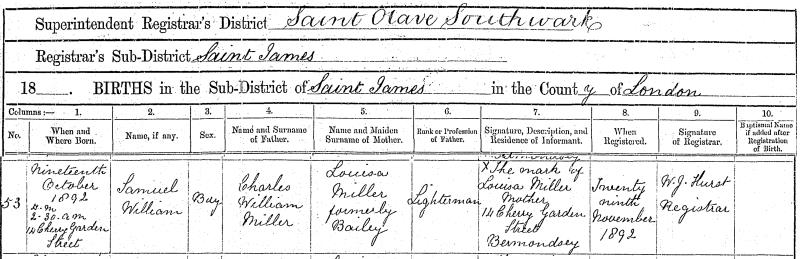 Superintendent Registrar's District Saint Olave Southwark
Registrar's Sub-District Saint James
18 . BIRTHS in the Sub-District of Saint James in the County of London
Columns:— 1. 2. 3. 4. 5. 6. 7. 8. 9. 10.
No. When and Where Born. Name, if any. Sex. Name and Surname of Father. Name and Maiden Surname of Mother. Rank or Profession of Father. Signature, Description, and Residence of Informant. When Registered. Signature of Registrar. Baptismal Name if added after Registration of Birth.
53
Nineteenth
October
1892
2-30 a.m
14 Cherry Garden
Street
Samuel
William
Boy
Charles
William
Miller
Louisa
Miller
formerly
Bailey
Lighterman
Bermondsey
X The mark of
Louisa Miller
Mother
14 Cherry Garden
Street
Bermondsey
Twenty
ninth
November
1892
W. J. Hurst
Registrar